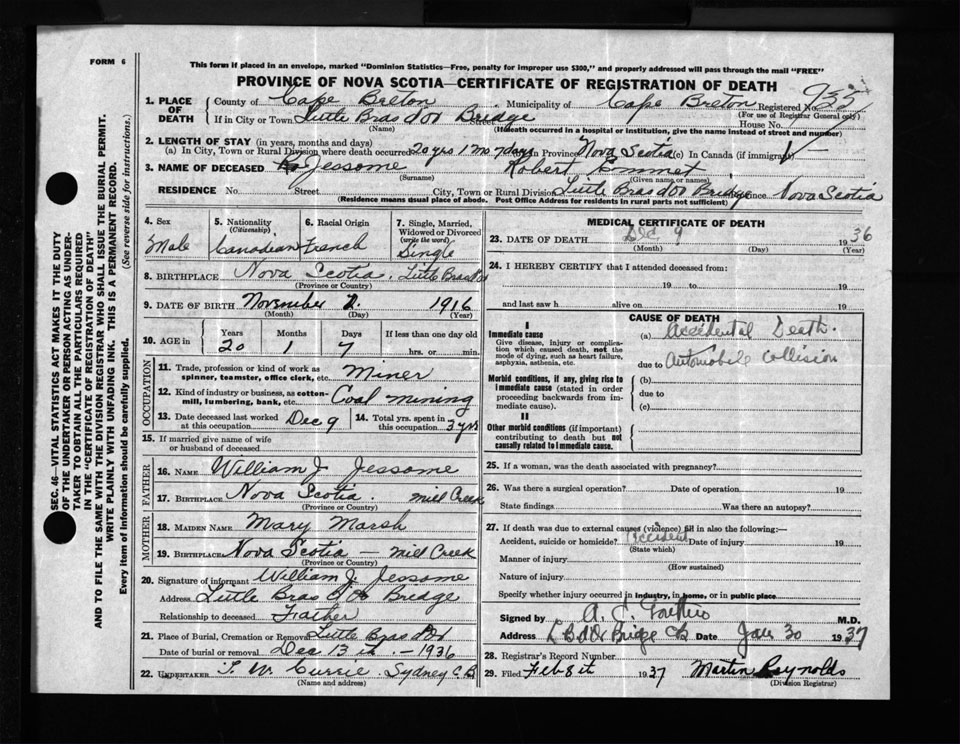 FORM 6
This form if placed in an envelope, marked "Dominion Statistics—Free, penalty for improper use $300," and properly addressed will pass through the mail "FREE"
PROVINCE OF NOVA SCOTIA—CERTIFICATE OF REGISTRATION OF DEATH
1. PLACE OF DEATH
County of Cape Breton Municipality of Cape Breton Registered No.
(For use of Registrar General only)
If in City or Town Little Bras d'Or Bridge Street House No.
(Name) (If death occurred in a hospital or institution, give the name instead of street and number)
2. LENGTH OF STAY (in years, months and days)
(a) In City, Town or Rural Division where death occurred 20 yrs 1 mo 7 days In Province Nova Scotia (c) In Canada (if immigrant)
3. NAME OF DECEASED Jessome Robert Emmet
(Surname) (Given name or names)
RESIDENCE No. Street. City, Town or Rural Division Little Bras d'Or Bridge Province Nova Scotia
(Residence means usual place of abode. Post Office Address for residents in rural parts not sufficient)
4. Sex
Male
5. Nationality
(Citizenship)
Canadian
6. Racial Origin
French
7. Single, Married, Widowed or Divorced
(write the word)
Single
8. BIRTHPLACE Nova Scotia. Little Bras d'Or
(Province or Country)
9. DATE OF BIRTH November 2. 1916
(Month) (Day) (Year)
10. AGE in
Years Months Days If less than one day old
20 1 7 hrs. or min.
OCCUPATION
11. Trade, profession or kind of work as spinner, teamster, office clerk, etc. Miner
12. Kind of industry or business, as cotton-mill, lumbering, bank, etc. Coal mining
13. Date deceased last worked at this occupation Dec 9
14. Total yrs. spent in this occupation 3 yrs
15. If married give name of wife or husband of deceased
FATHER
16. NAME William J. Jessome
17. BIRTHPLACE Nova Scotia. Mill Creek
(Province or Country)
MOTHER
18. MAIDEN NAME Mary Marsh
19. BIRTHPLACE Nova Scotia — Mill Creek
(Province or Country)
20. Signature of informant William J. Jessome
Address Little Bras d'Or Bridge
Relationship to deceased Father
21. Place of Burial, Cremation or Removal Little Bras d'Or
Date of burial or removal Dec 13 1936
22. UNDERTAKER Currie Sydney C.B.
(Name and address)
MEDICAL CERTIFICATE OF DEATH
23. DATE OF DEATH Dec 9 1936
(Month) (Day) (Year)
24. I HEREBY CERTIFY that I attended deceased from:
19 to 19
and last saw h alive on 19
CAUSE OF DEATH
I
Immediate cause
Give disease, injury or complication which caused death, not the mode of dying, such as heart failure, asphyxia, asthenia, etc.
(a) Accidental Death.
due to Automobile Collision
Morbid conditions, if any, giving rise to Immediate cause (stated in order proceeding backwards from immediate cause).
(b)
due to
(c)
II
Other morbid conditions (if important) contributing to death but not causally related to Immediate cause.
25. If a woman, was the death associated with pregnancy?
26. Was there a surgical operation? Date of operation 19
State findings Was there an autopsy?
27. If death was due to external causes (violence) fill in also the following:—
Accident, suicide or homicide? Accident Date of injury 19
(State which)
Manner of injury
(How sustained)
Nature of injury
Specify whether injury occurred in industry, in home, or in public place
Signed by M.D.
Address L B d'Or Bridge CB Date Jan 30 1937
28. Registrar's Record Number
29. Filed Feb 8 1937 Martin Reynolds
(Division Registrar)
SEC. 46—VITAL STATISTICS ACT MAKES IT THE DUTY
OF THE UNDERTAKER OR PERSON ACTING AS UNDER-
TAKER TO OBTAIN ALL THE PARTICULARS REQUIRED
IN THE "CERTIFICATE OF REGISTRATION OF DEATH"
AND TO FILE THE SAME WITH THE DIVISION REGISTRAR WHO SHALL ISSUE THE BURIAL PERMIT.
WRITE PLAINLY WITH UNFADING INK. THIS IS A PERMANENT RECORD.
Every item of information should be carefully supplied. (See reverse side for instructions.)